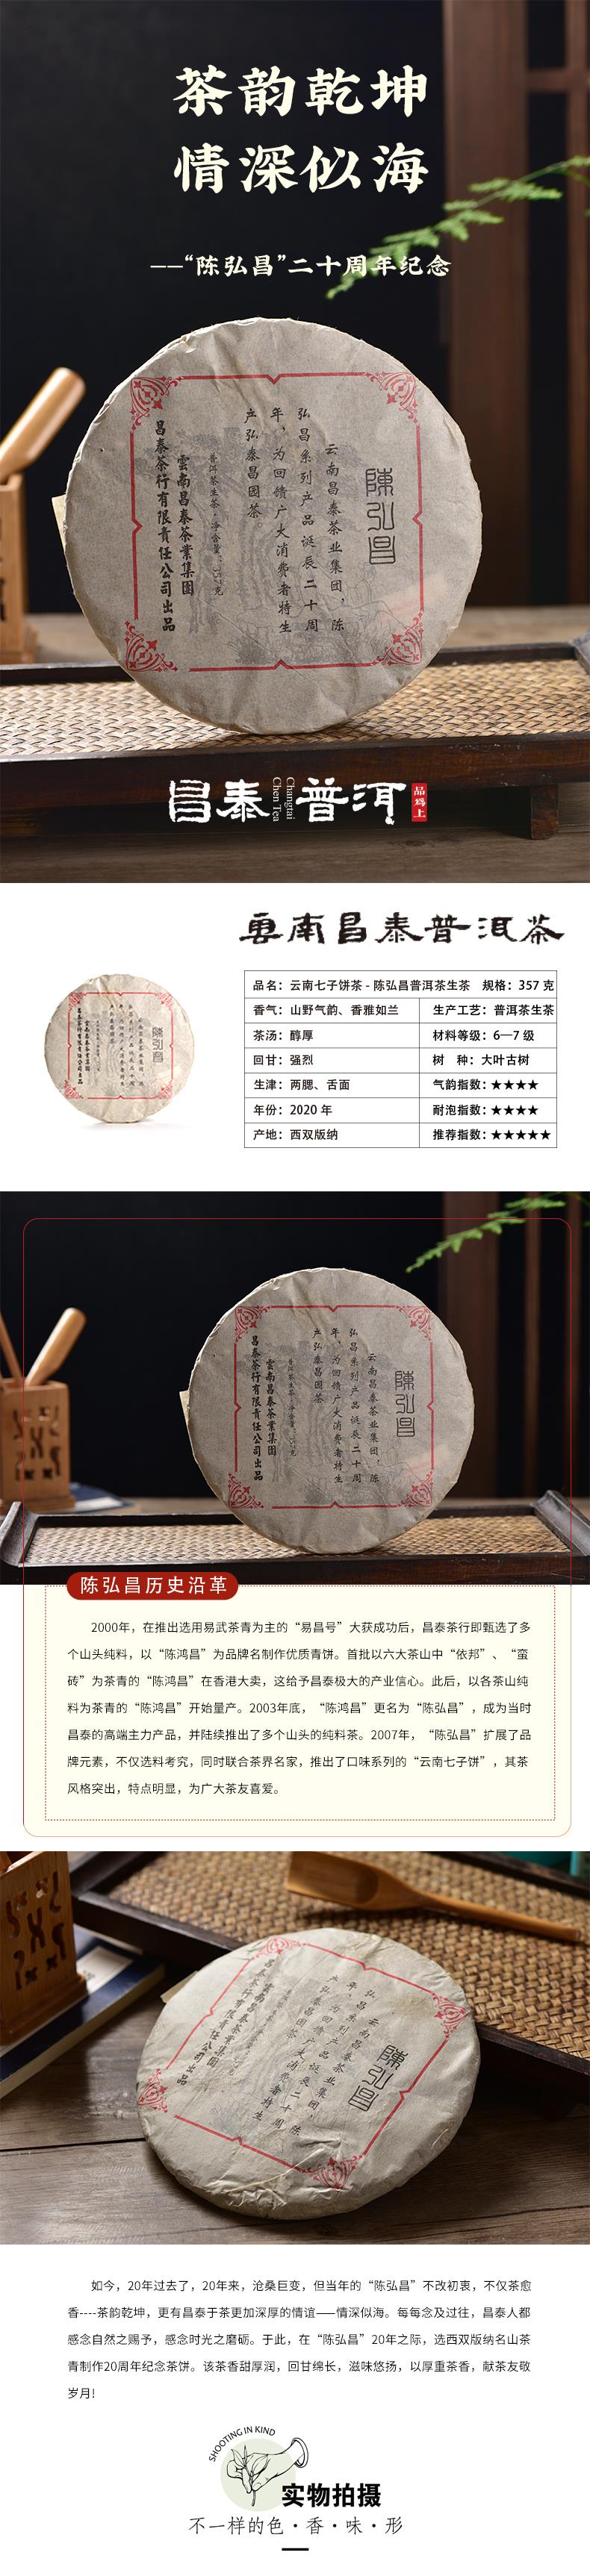 茶韵乾坤
情深似海
——“陈弘昌”二十周年纪念
陳弘昌
云南昌泰茶业集团，陈
弘昌系列产品诞辰二十周
年，为回馈广大消费者特生
产弘泰昌园茶
普洱茶生茶·净含量：357克
雲南昌泰茶業集团
昌泰茶行有限责任公司出品
昌泰
Changtai
Chen Tea
普洱
品爲上
雲南昌泰普洱茶
品名：云南七子饼茶 - 陈弘昌普洱茶生茶 规格：357 克
香气：山野气韵、香雅如兰 生产工艺：普洱茶生茶
茶汤：醇厚 材料等级：6—7 级
回甘：强烈 树 种：大叶古树
生津：两腮、舌面 气韵指数：★★★★
年份：2020 年 耐泡指数：★★★★
产地：西双版纳 推荐指数：★★★★★
陳弘昌
云南昌泰茶业集团，陈
弘昌系列产品诞辰二十周
年，为回馈广大消费者特生
产弘泰昌园茶
普洱茶生茶·净含量：357克
雲南昌泰茶業集团
昌泰茶行有限责任公司出品
陈弘昌历史沿革
2000年，在推出选用易武茶青为主的“易昌号”大获成功后，昌泰茶行即甄选了多
个山头纯料，以“陈鸿昌”为品牌名制作优质青饼。首批以六大茶山中“依邦”、“蛮
砖”为茶青的“陈鸿昌”在香港大卖，这给予昌泰极大的产业信心。此后，以各茶山纯
料为茶青的“陈鸿昌”开始量产。2003年底，“陈鸿昌”更名为“陈弘昌”，成为当时
昌泰的高端主力产品，并陆续推出了多个山头的纯料茶。2007年，“陈弘昌”扩展了品
牌元素，不仅选料考究，同时联合茶界名家，推出了口味系列的“云南七子饼”，其茶
风格突出，特点明显，为广大茶友喜爱。
陳弘昌
云南昌泰茶业集团，陈
弘昌系列产品诞辰二十周
年，为回馈广大消费者特生
产弘泰昌园茶
雲南昌泰茶業集团
昌泰茶行有限责任公司出品
如今，20年过去了，20年来，沧桑巨变，但当年的“陈弘昌”不改初衷，不仅茶愈
香----茶韵乾坤，更有昌泰于茶更加深厚的情谊——情深似海。每每念及过往，昌泰人都
感念自然之赐予，感念时光之磨砺。于此，在“陈弘昌”20年之际，选西双版纳名山茶
青制作20周年纪念茶饼。该茶香甜厚润，回甘绵长，滋味悠扬，以厚重茶香，献茶友敬
岁月!
SHOOTING IN KIND
实物拍摄
不一样的色·香·味·形